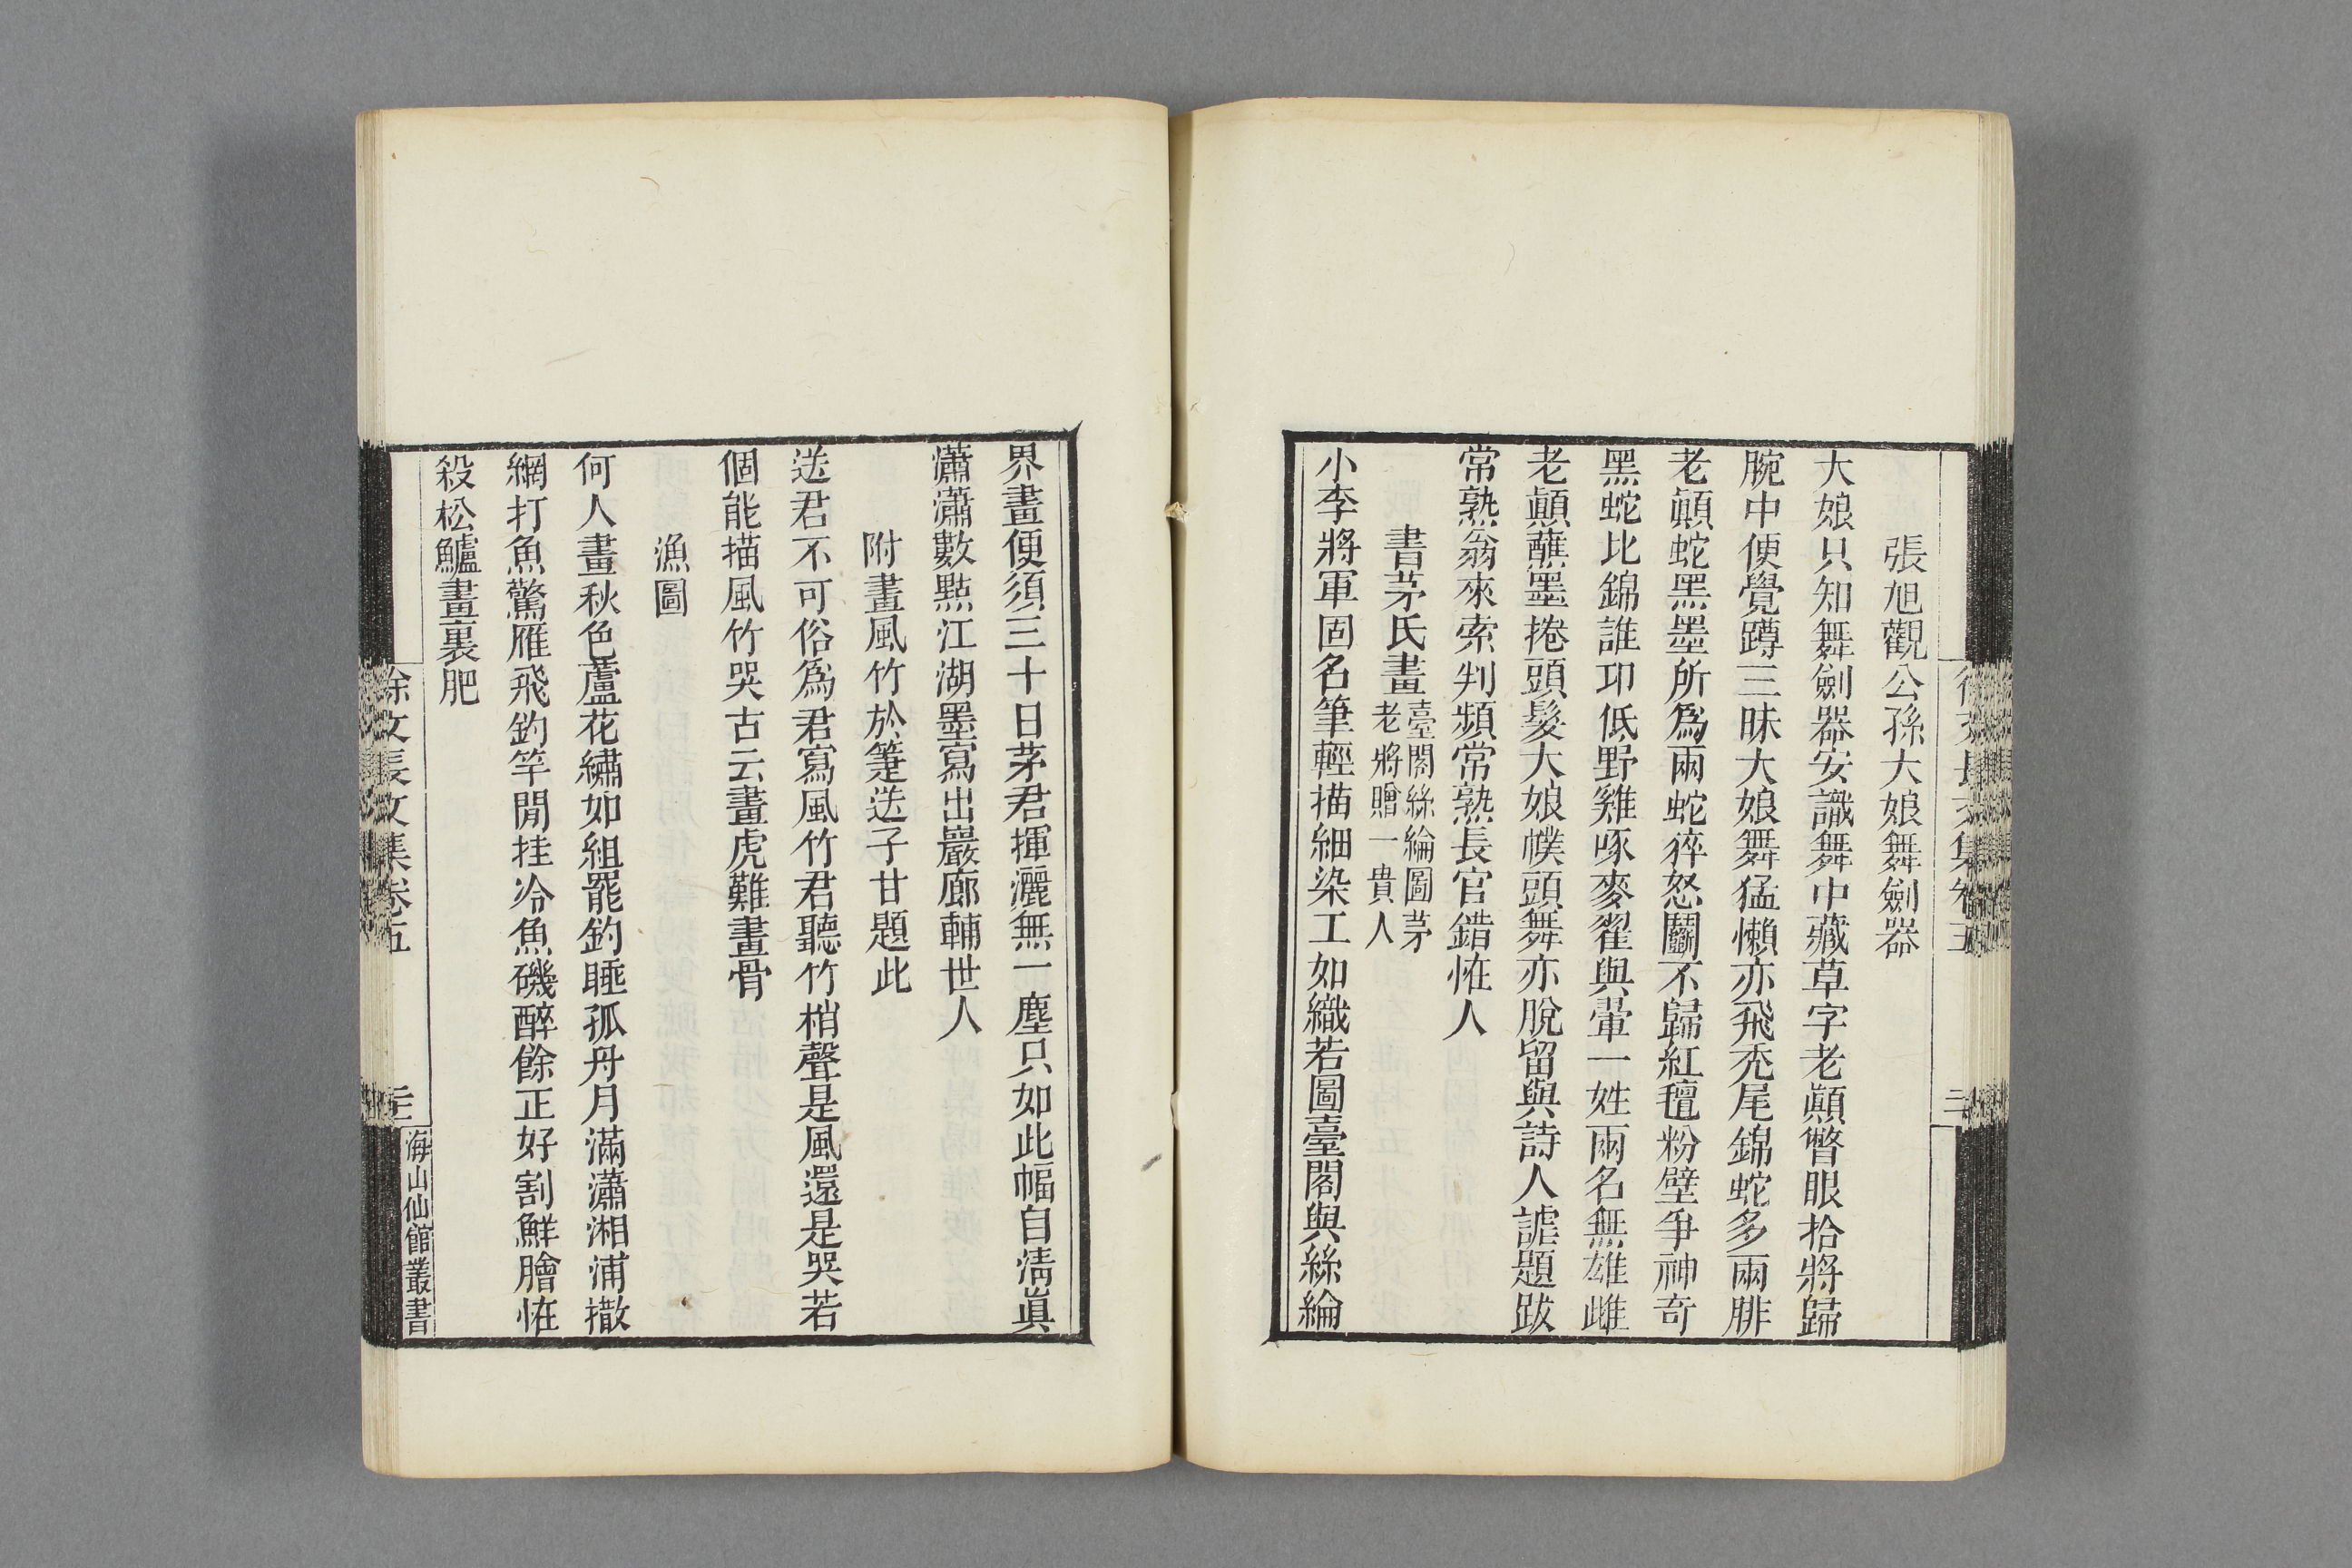 張旭觀公孫大娘舞劍器
大娘只知舞劍器安識舞中藏草字老顚瞥眼拾將歸
腕中便覺蹲三昧大娘舞猛懶亦飛禿尾錦蛇多兩腓
老顚蛇黑墨所爲兩蛇猝怒鬬不歸紅氊粉壁爭神奇
黑蛇比錦誰卭低野雞啄麥翟與翬一姓兩名無雄雌
老顚蘸墨捲頭髮大娘幞頭舞亦脫留與詩人謔題跋
常熟翁來索判頻常熟長官錯怪人
書茅氏畫臺閣絲綸圖茅
老將贈一貴人
小李將軍固名筆輕描細染工如織若圖臺閣與絲綸
界畫便須三十日茅君揮灑無一塵只如此幅自淸眞
瀟瀟數點江湖墨寫出巖廊輔世人
附畫風竹於箑送子甘題此
送君不可俗爲君寫風竹君聽竹梢聲是風還是哭若
個能描風竹哭古云畫虎難畫骨
漁圖
何人畫秋色蘆花繡如組罷釣睡孤舟月滿瀟湘浦撤
網打魚驚雁飛釣竿閒挂冷魚磯醉餘正好割鮮膾怪
殺松鱸畫裏肥
徐文長文集卷五
海山仙館叢書